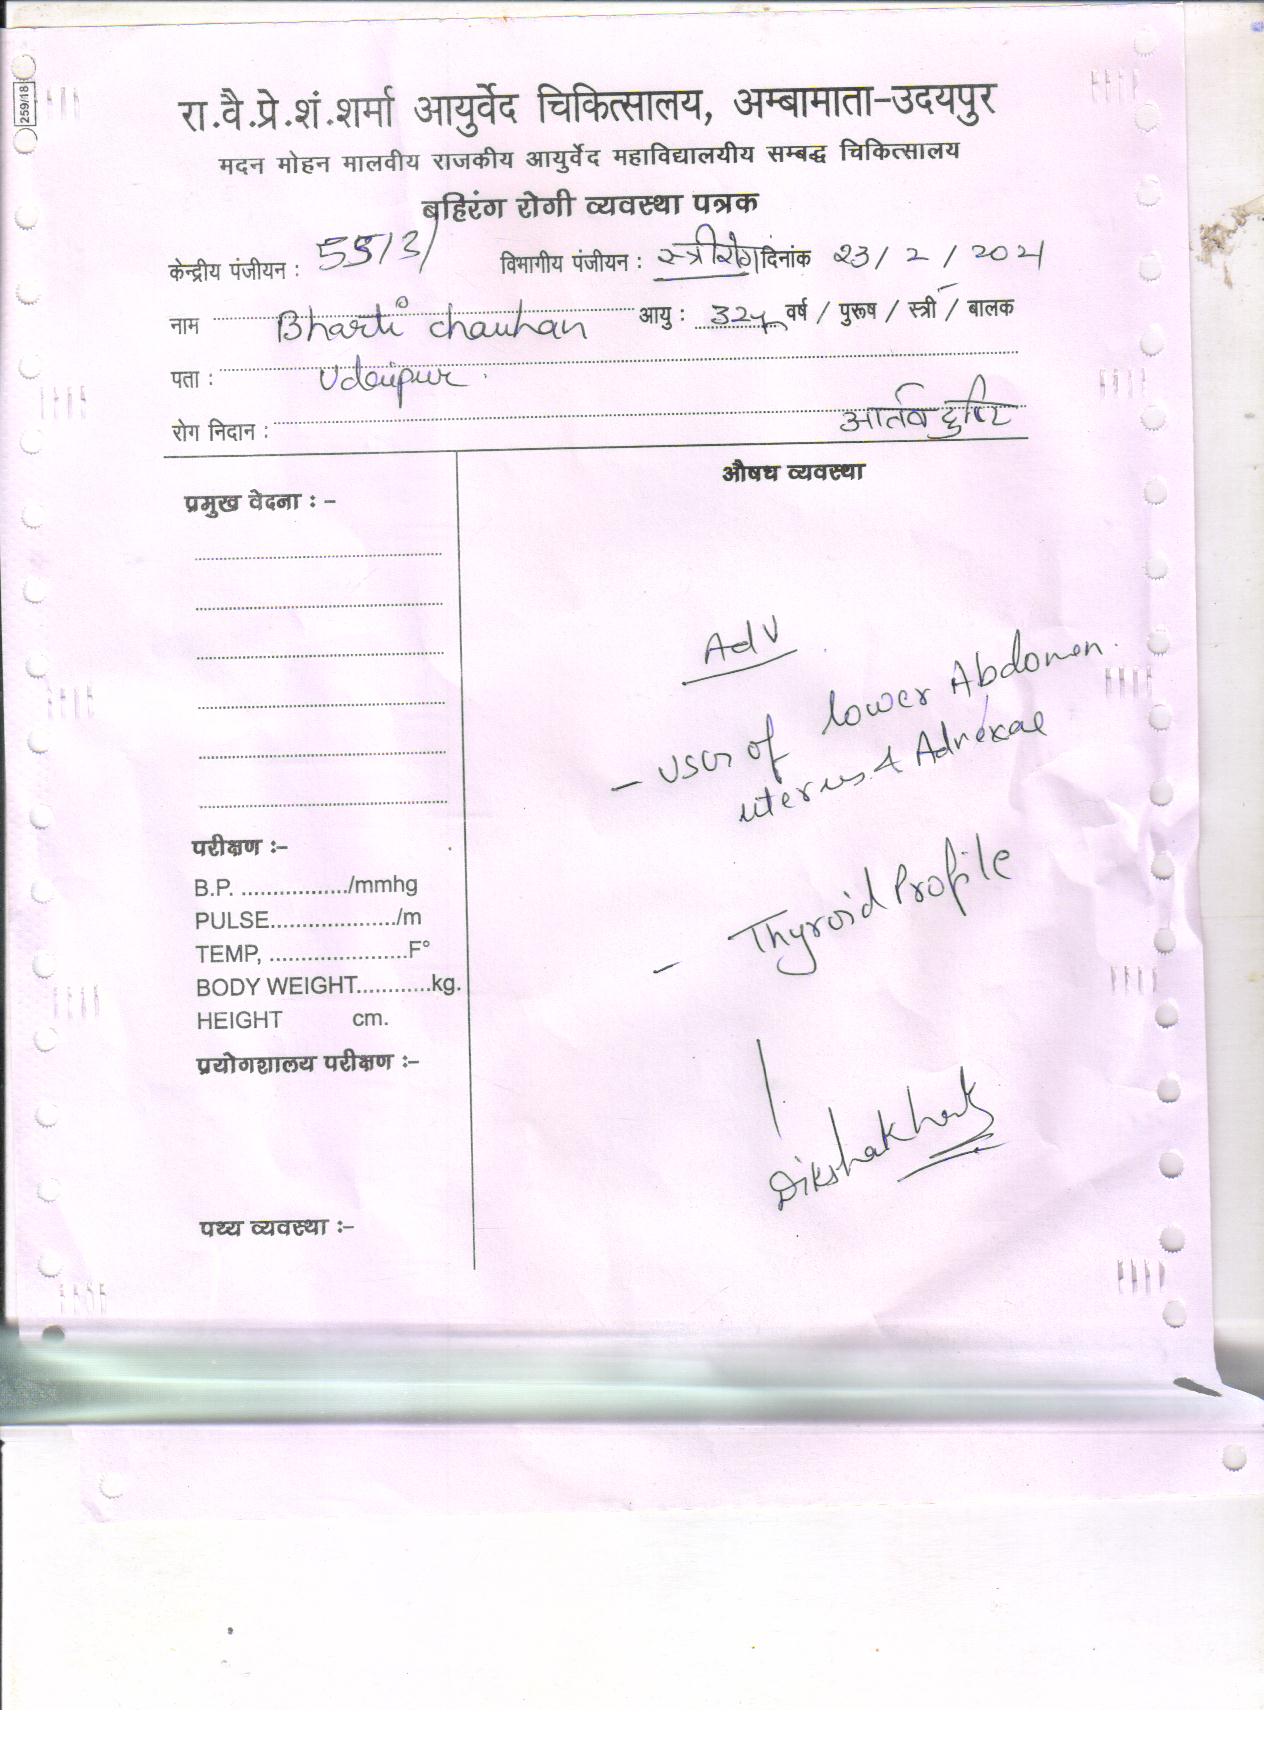 259/18
रा.वै.प्रे.शं.शर्मा आयुर्वेद चिकित्सालय, अम्बामाता-उदयपुर
मदन मोहन मालवीय राजकीय आयुर्वेद महाविद्यालयीय सम्बद्ध चिकित्सालय
बहिरंग रोगी व्यवस्था पत्रक
केन्द्रीय पंजीयन : विभागीय पंजीयन : स्त्रीरोग दिनांक 23/2/2021
नाम Bharti Chauhan आयु : 32y वर्ष / पुरूष / स्त्री / बालक
पता : Udaipur.
रोग निदान : आर्तव दुष्टि
औषध व्यवस्था
प्रमुख वेदना : -
Adv
- USG of lower Abdomen.
uterus & Adnexae
परीक्षण :-
B.P. ................./mmhg
PULSE..................../m
TEMP, ......................F°
BODY WEIGHT............kg.
HEIGHT cm.
- Thyroid Profile
प्रयोगशालय परीक्षण :-
पथ्य व्यवस्था :-